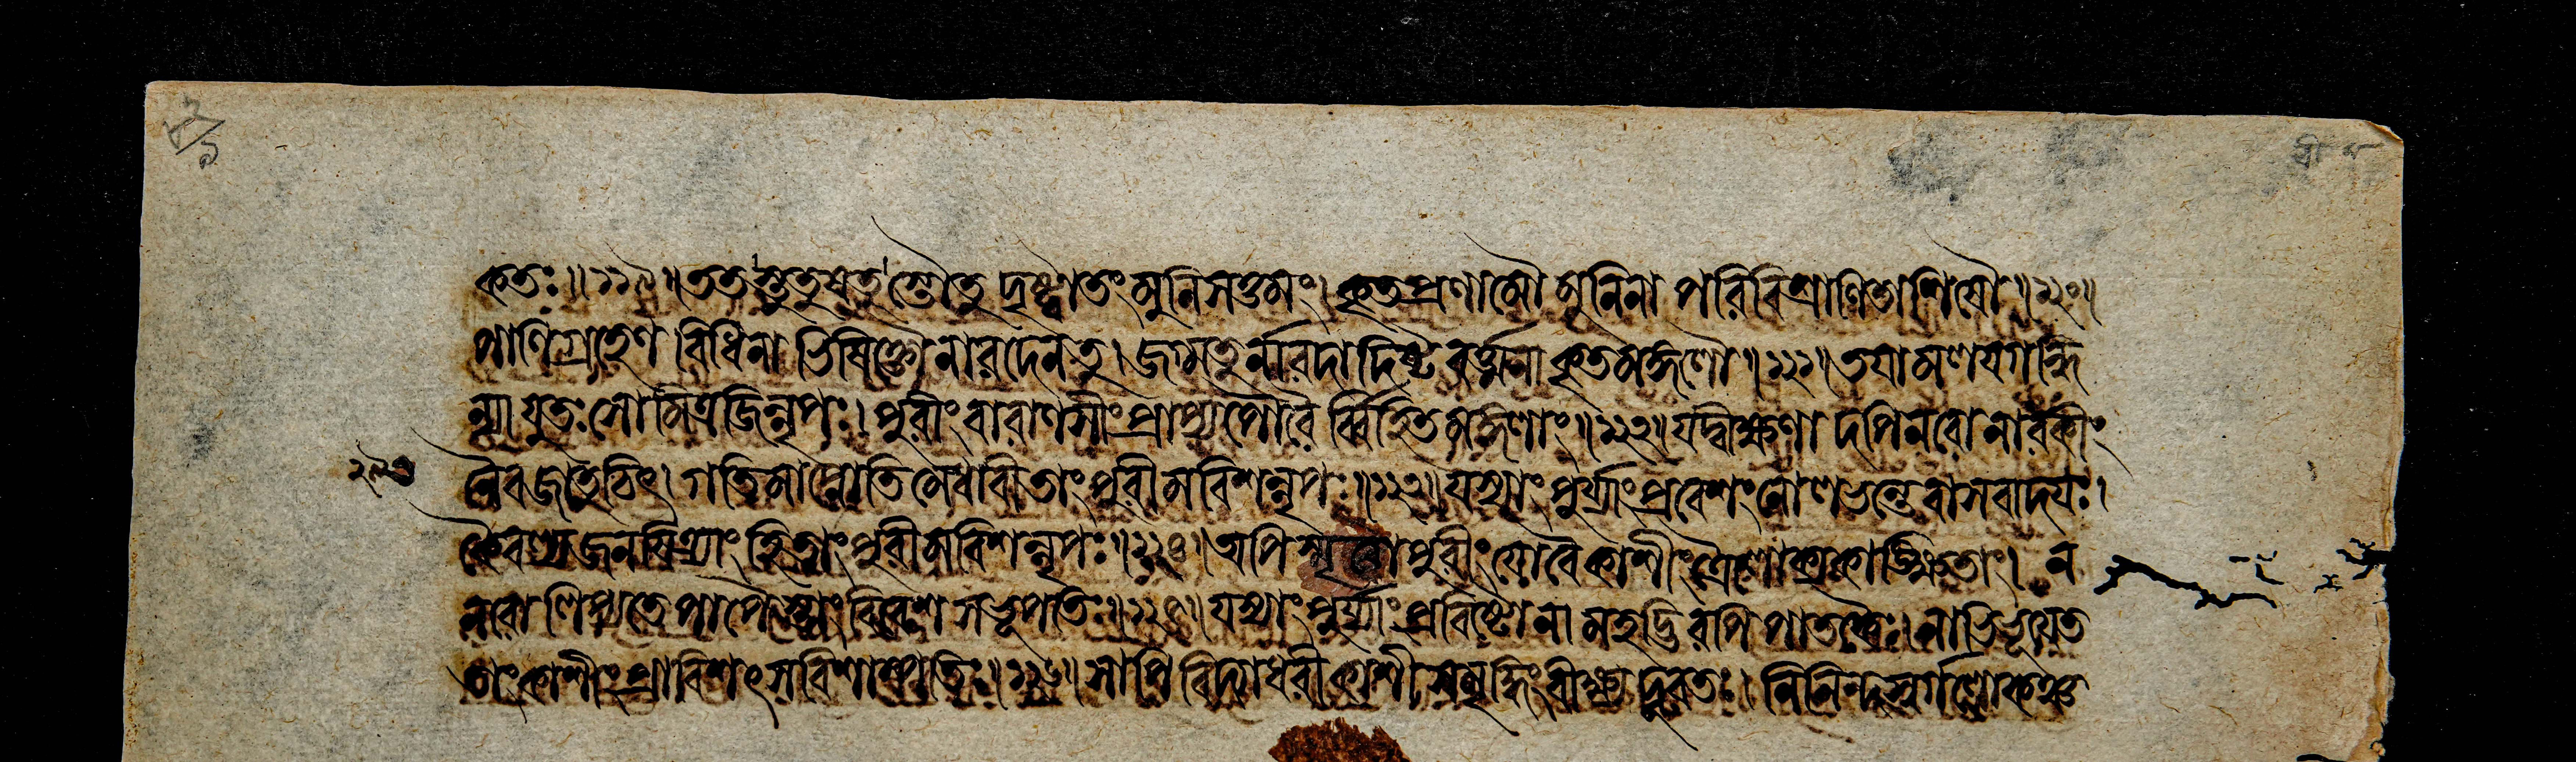 কতঃ॥১১৯॥ততস্তুতুষতুস্তৌতু দৃষ্ট্বাতং মুনিসত্তমং।কৃতপ্রণামৌ মুনিনা পরিবিশ্রাণিতাশিষৌ॥১২০॥
পাণিগ্রহেণ বিধিনা ভিষিক্তৌনারদেনতু।জগ্মতুর্নারদাদিষ্টবর্ত্মনাকৃতমঙ্গলৌ॥১২১॥তয়ামলয়গন্ধি
ন্যাযুতঃসোমিত্রজিন্নৃপঃ।পুরীংবারাণসীংপ্রাপ্যপৌরৈর্ব্বিহিতমঙ্গলাং॥১২২॥যদ্বীক্ষণাদপিনরোনারকীং
নৈবজাতুচিৎ।গতিমাপ্নোতিমেধাবীতাংপুরীমবিশন্নৃপঃ॥১২৩॥যস্যাংপুর্য্যাংপ্রবেশংনোলভন্তেবাসবাদয়ঃ।
কৈবল্যজনয়িত্র্যাংহিতাংপুরীমবিশন্নৃপঃ॥১২৪॥অপিস্মৃত্বাপুরীংযোবৈকাশীংত্রৈলোক্যকাঙ্ক্ষিতাং। ন
নরোলিপ্যতেপাপৈস্তাংবিবেশসভূপতিঃ॥১২৫॥যস্যাংপুর্য্যাংপ্রবিষ্টোনামহদ্ভিরপিপাতকৈঃ।নাভিভূয়েত
তাংকাশীংপ্রাবিশৎসবিশাম্পতিঃ॥১২৬॥সাপি বিদ্যাধরীকাশীসমৃদ্ধিংবীক্ষ্যদূরতঃ। নিনিন্দস্বর্গলোকঞ্চ